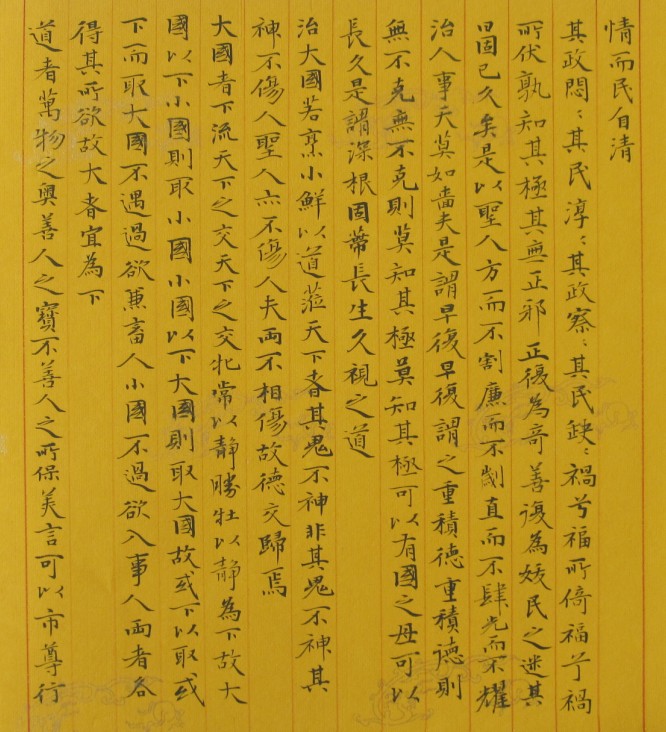 情而民自清
其政悶:其民淳:其政察:其民缺:禍兮福所倚福兮禍
所伏孰知其極其無正邪正復為奇善復為妖民之迷其
日固已久矣是以聖人方而不割廉而不劌直而不肆光而不耀
治人事天莫如嗇夫是謂早復早復謂之重積德重積德則
無不克無不克則莫知其極莫知其極可以有國之母可以
長久是謂深根固蒂長生久視之道
治大國若烹小鮮以道蒞天下者其鬼不神非其鬼不神其
神不傷人聖人亦不傷人夫兩不相傷故德交歸焉
大國者下流天下之交天下之交牝常以靜勝牡以靜為下故大
國以下小國則取小國小國以下大國則取大國故或下以取或
下而取大國不過過欲兼畜人小國不過欲入事人兩者各
得其所欲故大者宜為下
道者萬物之奧善人之寶不善人之所保美言可以市尊行